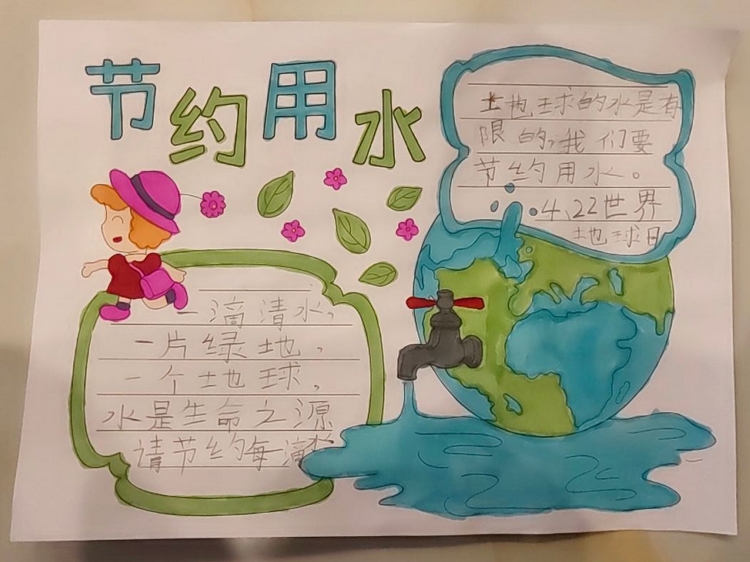 节约用水
土地球的水是有
限的,我们要
节约用水。
4.22世界
地球日
一滴清水,
一片绿地,
一个地球,
水是生命之源
请节约每滴